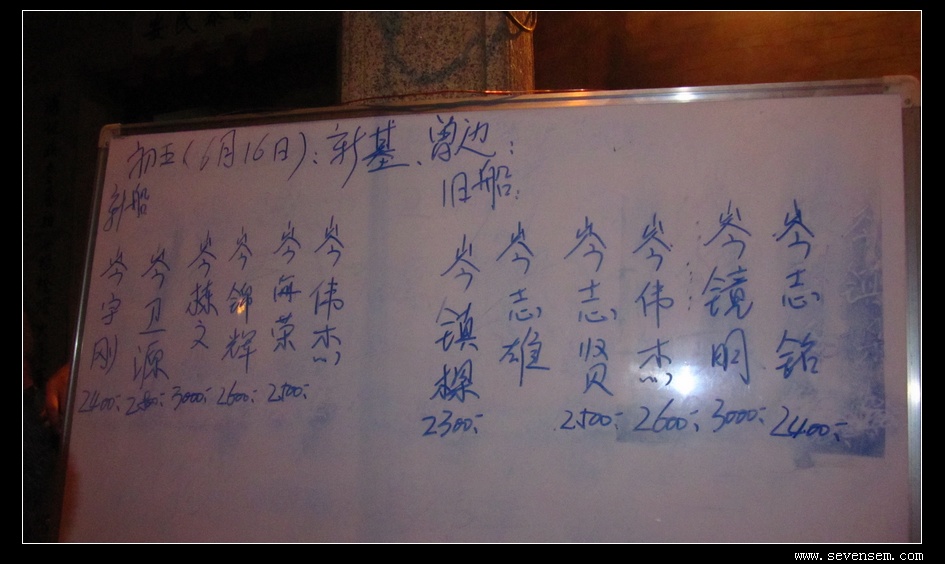 初五(6月16日):新基、曾边:
新船
旧船:
岑宇刚 2400:
岑卫源 2800:
岑栋文 3000:
岑锦辉 2600:
岑海荣 2500:
岑伟杰
岑镇樑 2300:
岑志雄
岑志贤 2500:
岑伟杰 2600:
岑镜明 3000:
岑志铭 2400:
www.sevensem.com